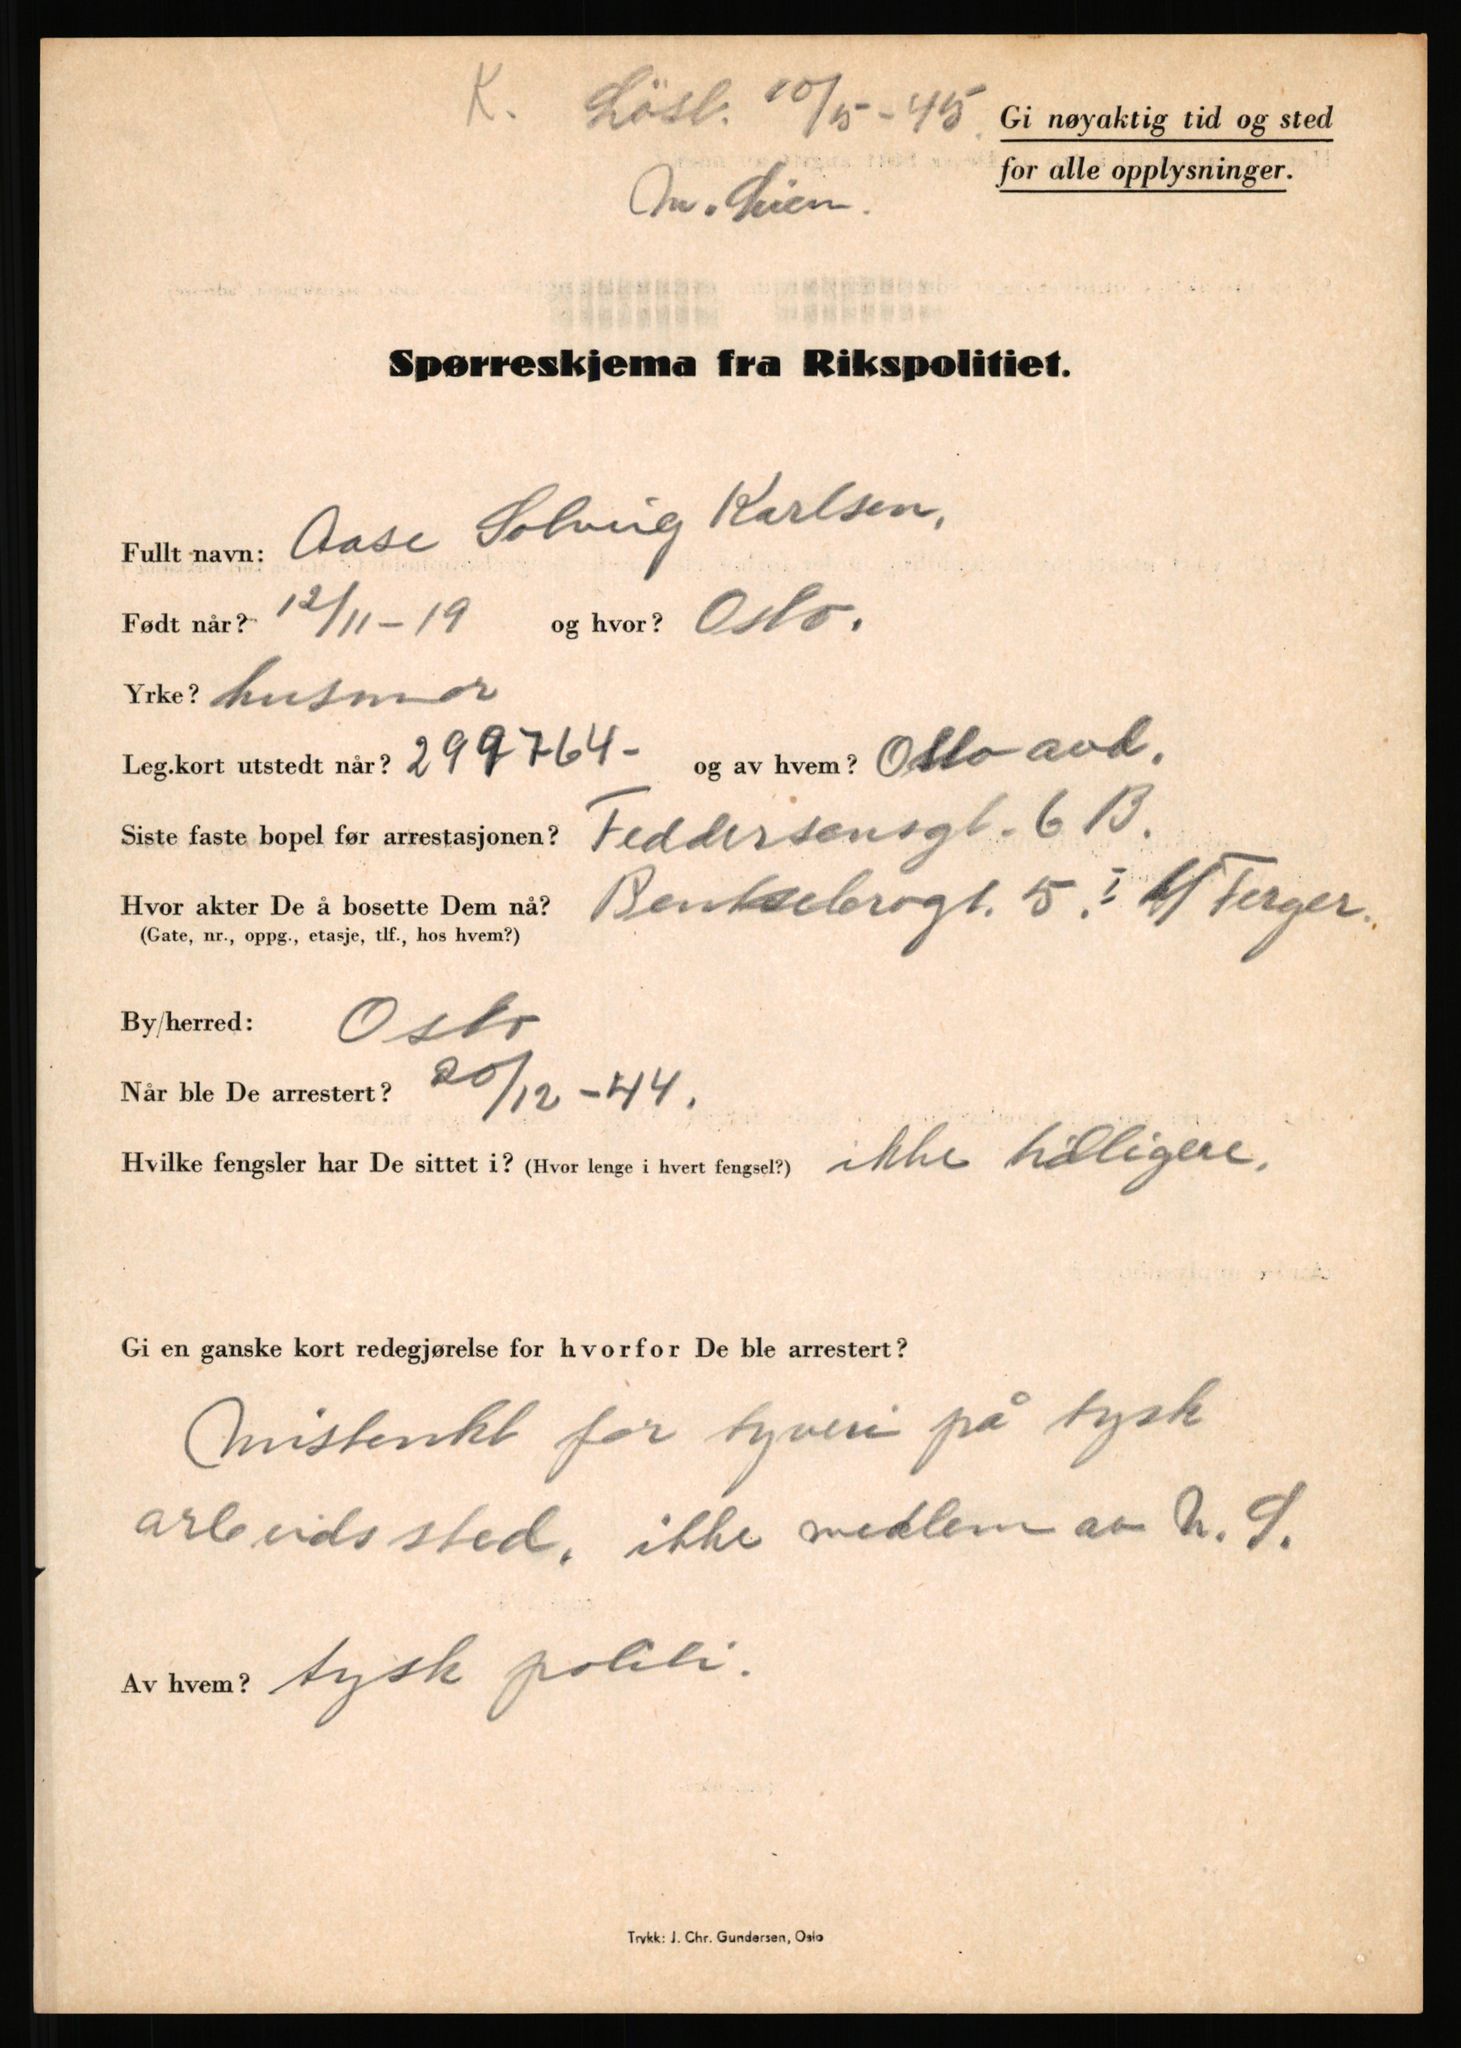 K. Lösl. 10/5-45.
Gi nøyaktig tid og sted
for alle opplysninger.
M. Lien.
Spørreskjema fra Rikspolitiet.
Fullt navn: Aase Solveig Karlsen.
Født når? 12/11-19 og hvor? Oslo.
Yrke? husmor
Leg.kort utstedt når? 299764- og av hvem? Oslo avd.
Siste faste bopel før arrestasjonen? Feddersensgt. 6 B.
Hvor akter De å bosette Dem nå? Bentsebrogt. 5. I Ferger.
(Gate, nr., oppg., etasje, tlf., hos hvem?)
By/herred: Oslo
Når ble De arrestert? 20/12-44.
Hvilke fengsler har De sittet i? (Hvor lenge i hvert fengsel?) ikke tidligere.
Gi en ganske kort redegjørelse for hvorfor De ble arrestert?
Mistenkt for tyveri på tysk
arbeidssted. ikke medlem av N. S.
Av hvem? tysk politi.
Trykk: J. Chr. Gundersen, Oslo